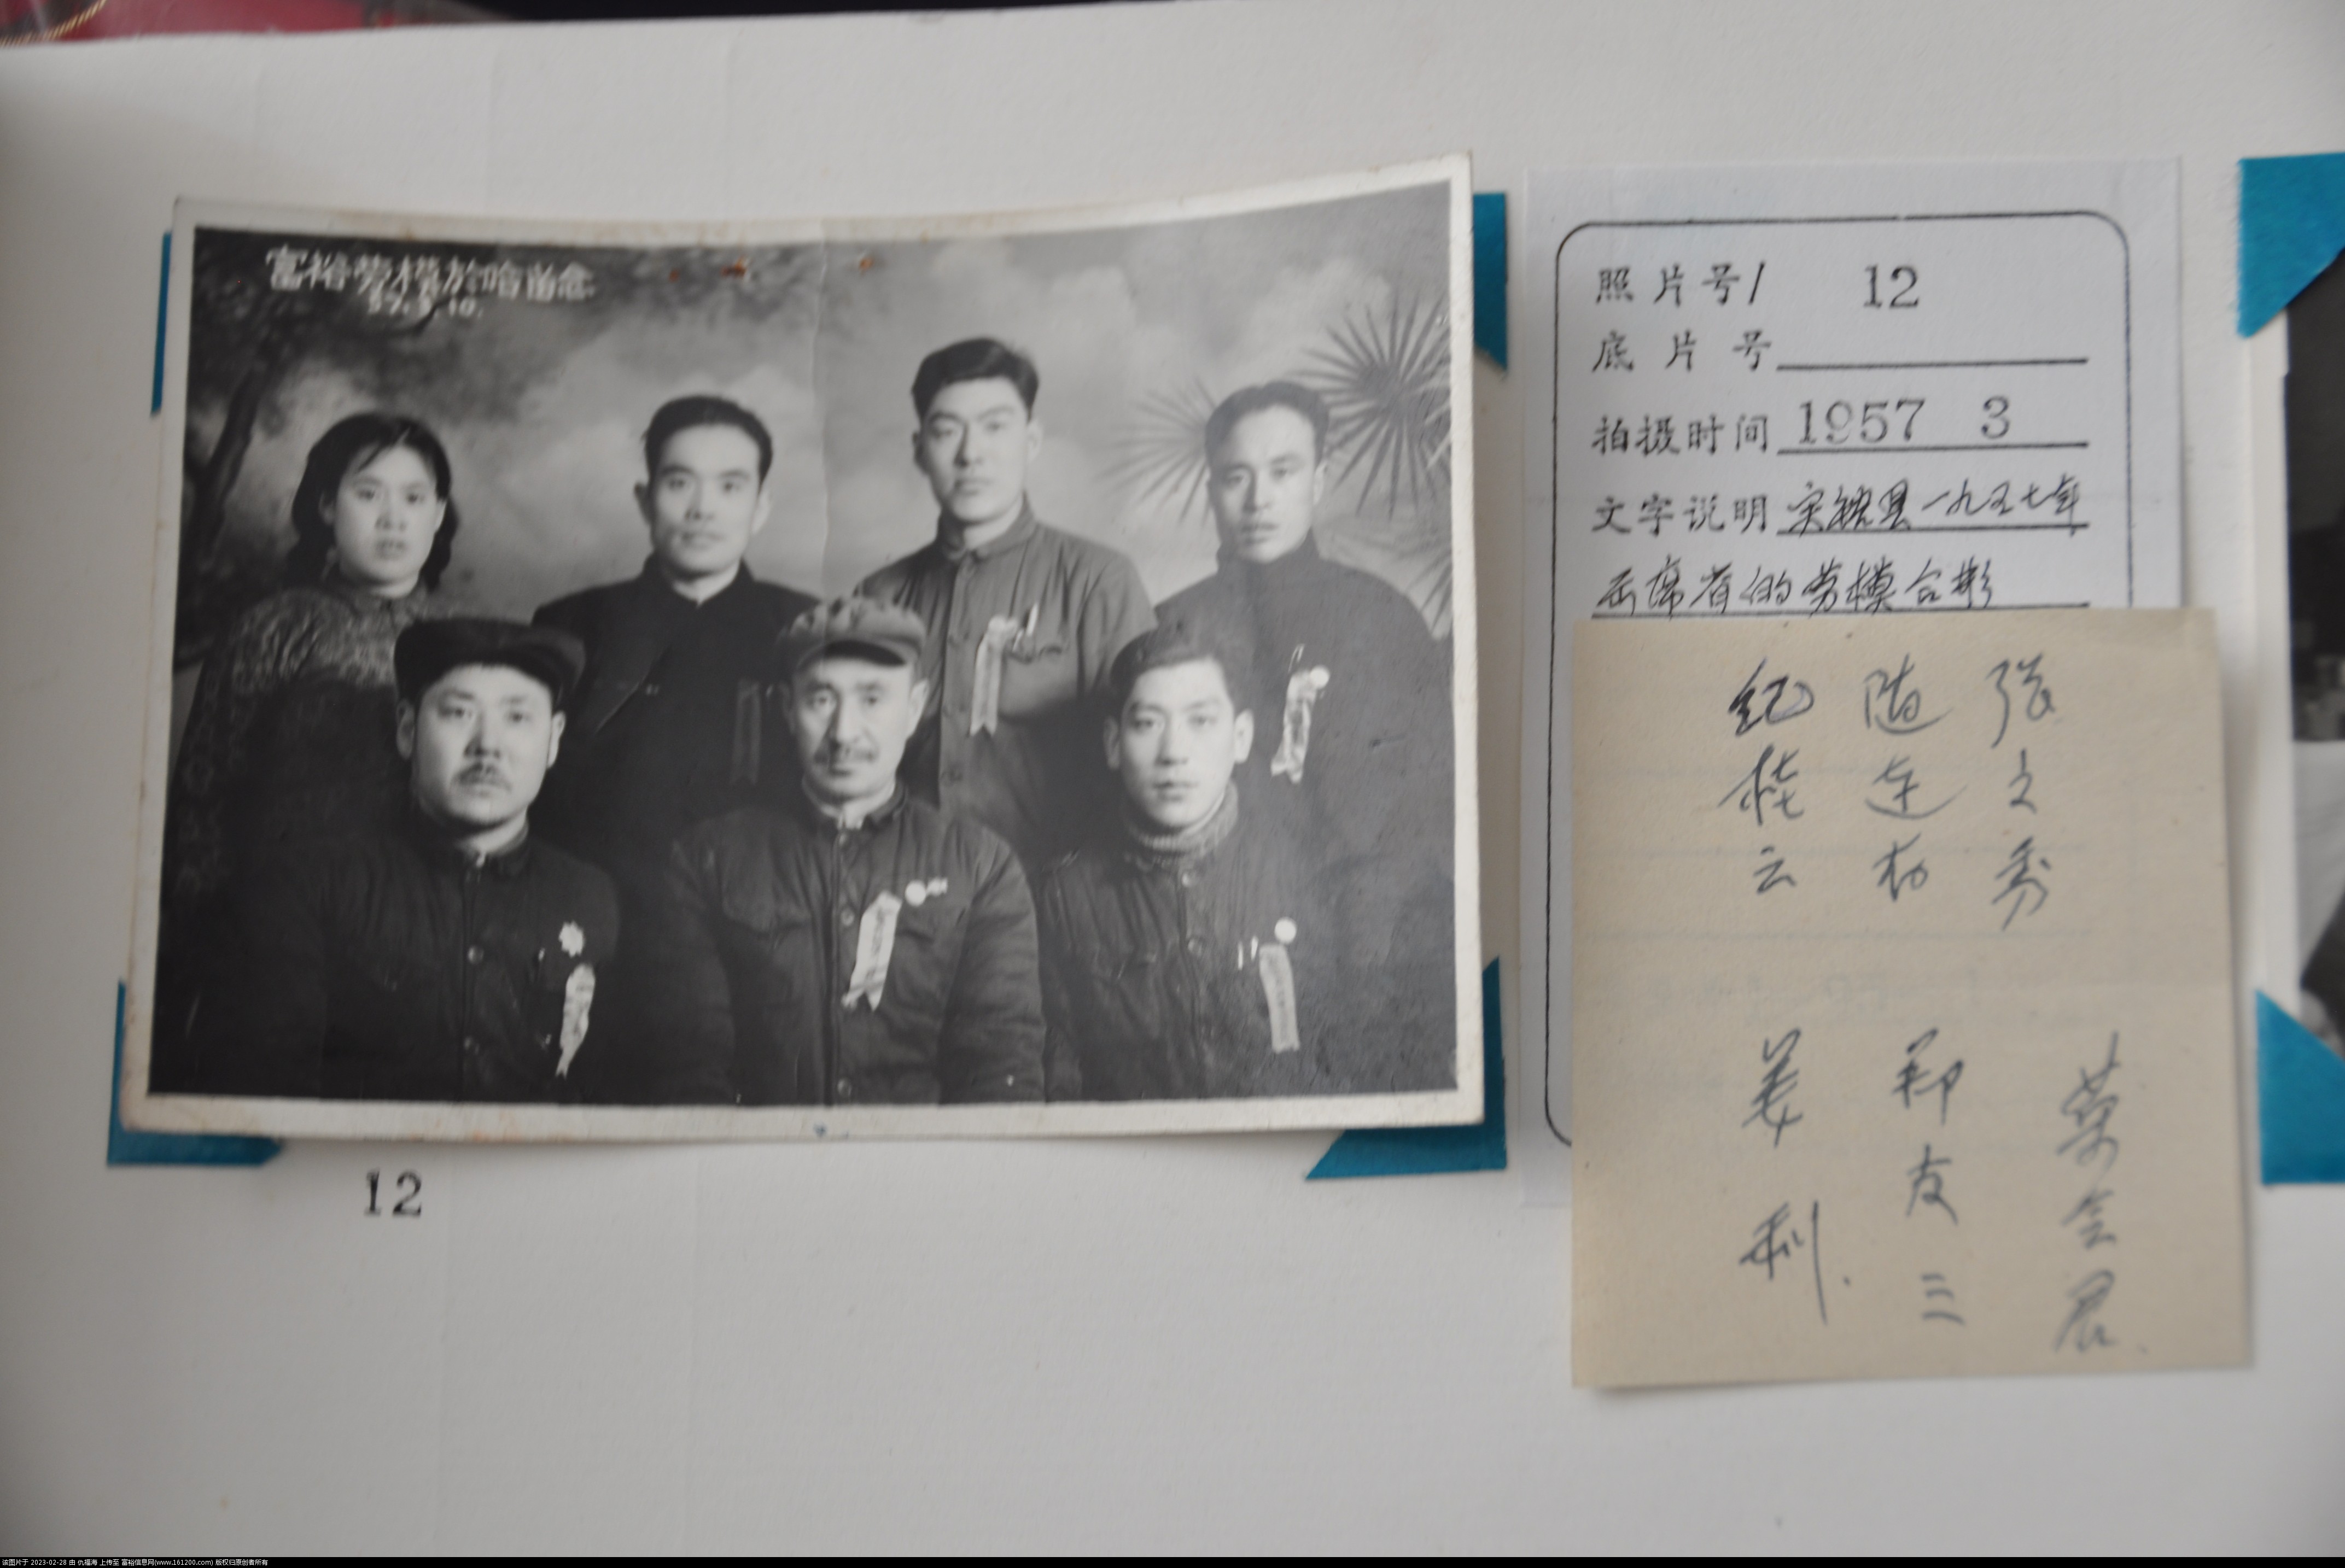 富裕劳模於哈留念
57.3.10.
12
照片号/ 12
底片号
拍摄时间 1957 3
文字说明 富裕县一九五七年
出席省的劳模合影
纪桂云
随连
张文
姜利.
郑友三
会
该图片于 2023-02-28 由 仇福海 上传至 富裕信息网(www.161200.com) 版权归原创者所有